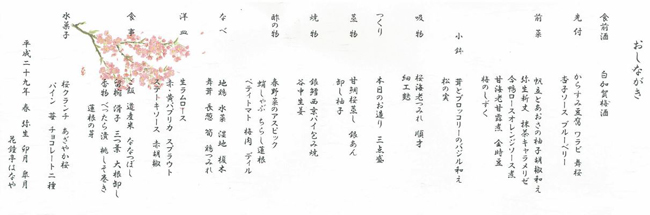 おしながき
食前酒 白加賀梅酒
先付 からすみ豆腐 ワラビ 舞桜
杏子ソース ブルーベリー
前菜 帆立とあおさの柚子胡椒和え
弥生新丈 抹茶キャラメリゼ
合鴨ロースオレンジソース煮
甘海老甘露煮 金時豆
梅のしずく
小鉢 茸とブロッコリーのバジル和え
松の実
吸物 桜海老つみれ 順才
細工麩
つくり 本日のお造り 三点盛
蒸物 甘鯛桜蒸し 銀あん
卸し柚子
焼物 銀鱈西京パイ包み焼
谷中生姜
酢の物 春野菜のアスピック
蛸しゃぶ ちらし蓮根
ペティトマト 梅肉 ディル
なべ 地鶏 水菜 湿地 榎木
舞茸 長葱 筍 鶏つみれ
洋皿 生ラムロース
赤・黄パプリカ スプラウト
ステーキソース 赤胡椒
食事 道産米 ななつぼし
滑子 三つ葉 大根卸し
香物 べったら漬 桃しそ巻き
蓮根の芽
水菓子 桜クランチ あざやか桜
パイン 苺 チョコレート二種
平成二十九年 春 弥生 卯月 皐月
花鐘亭はなや